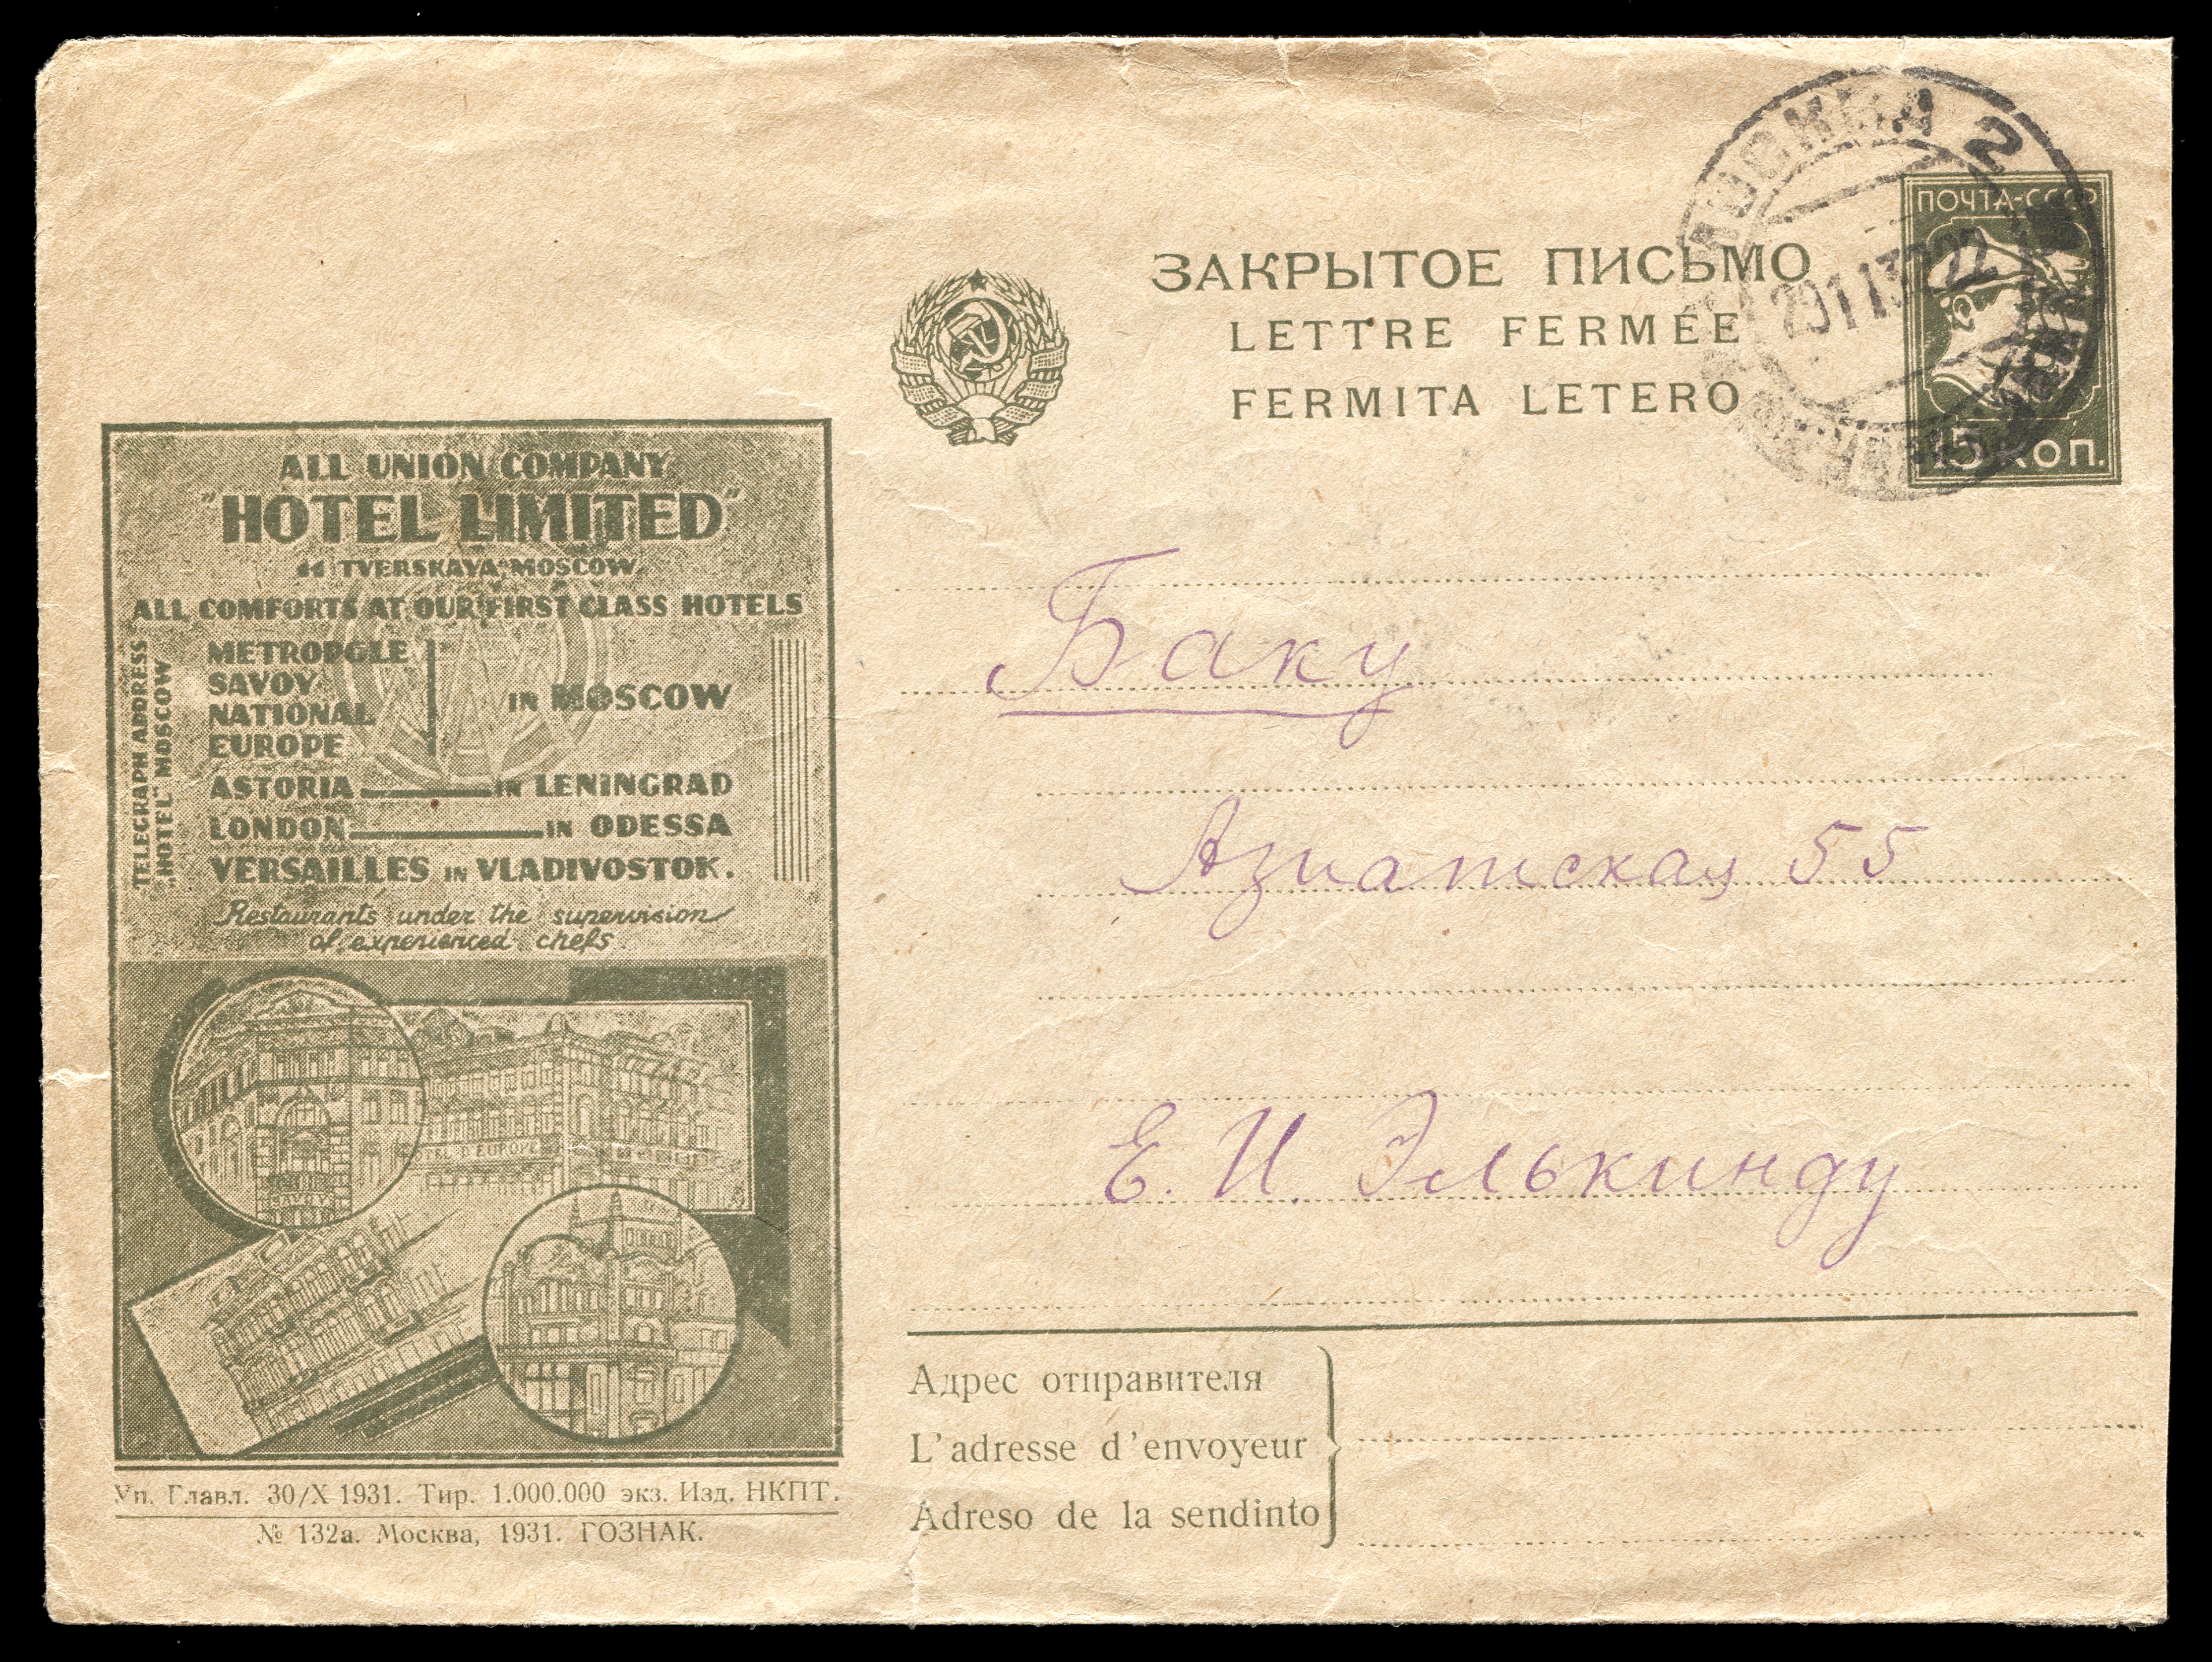 МОСКВА 2
ПОЧТА-СССР
15 КОП.
ЗАКРЫТОЕ ПИСЬМО
LETTRE FERMÉE
FERMITA LETERO
ALL UNION COMPANY
"HOTEL LIMITED"
44 TVERSKAYA, MOSCOW.
ALL COMFORTS AT OUR FIRST CLASS HOTELS
TELEGRAPH ADDRESS
„HOTEL" MOSCOW
METROPOLE
SAVOY
NATIONAL
EUROPE
IN MOSCOW
ASTORIA IN LENINGRAD
LONDON IN ODESSA
VERSAILLES IN VLADIVOSTOK.
Restaurants under the supervision
of experienced chefs.
HOTEL D'EUROPE
SAVOY
Баку
Азиатская 55
Е. И. Элькинду
Адрес отправителя
L'adresse d'envoyeur
Adreso de la sendinto
Уп. Главл. 30/X 1931. Тир. 1.000.000 экз. Изд. НКПТ.
№ 132а. Москва, 1931. ГОЗНАК.